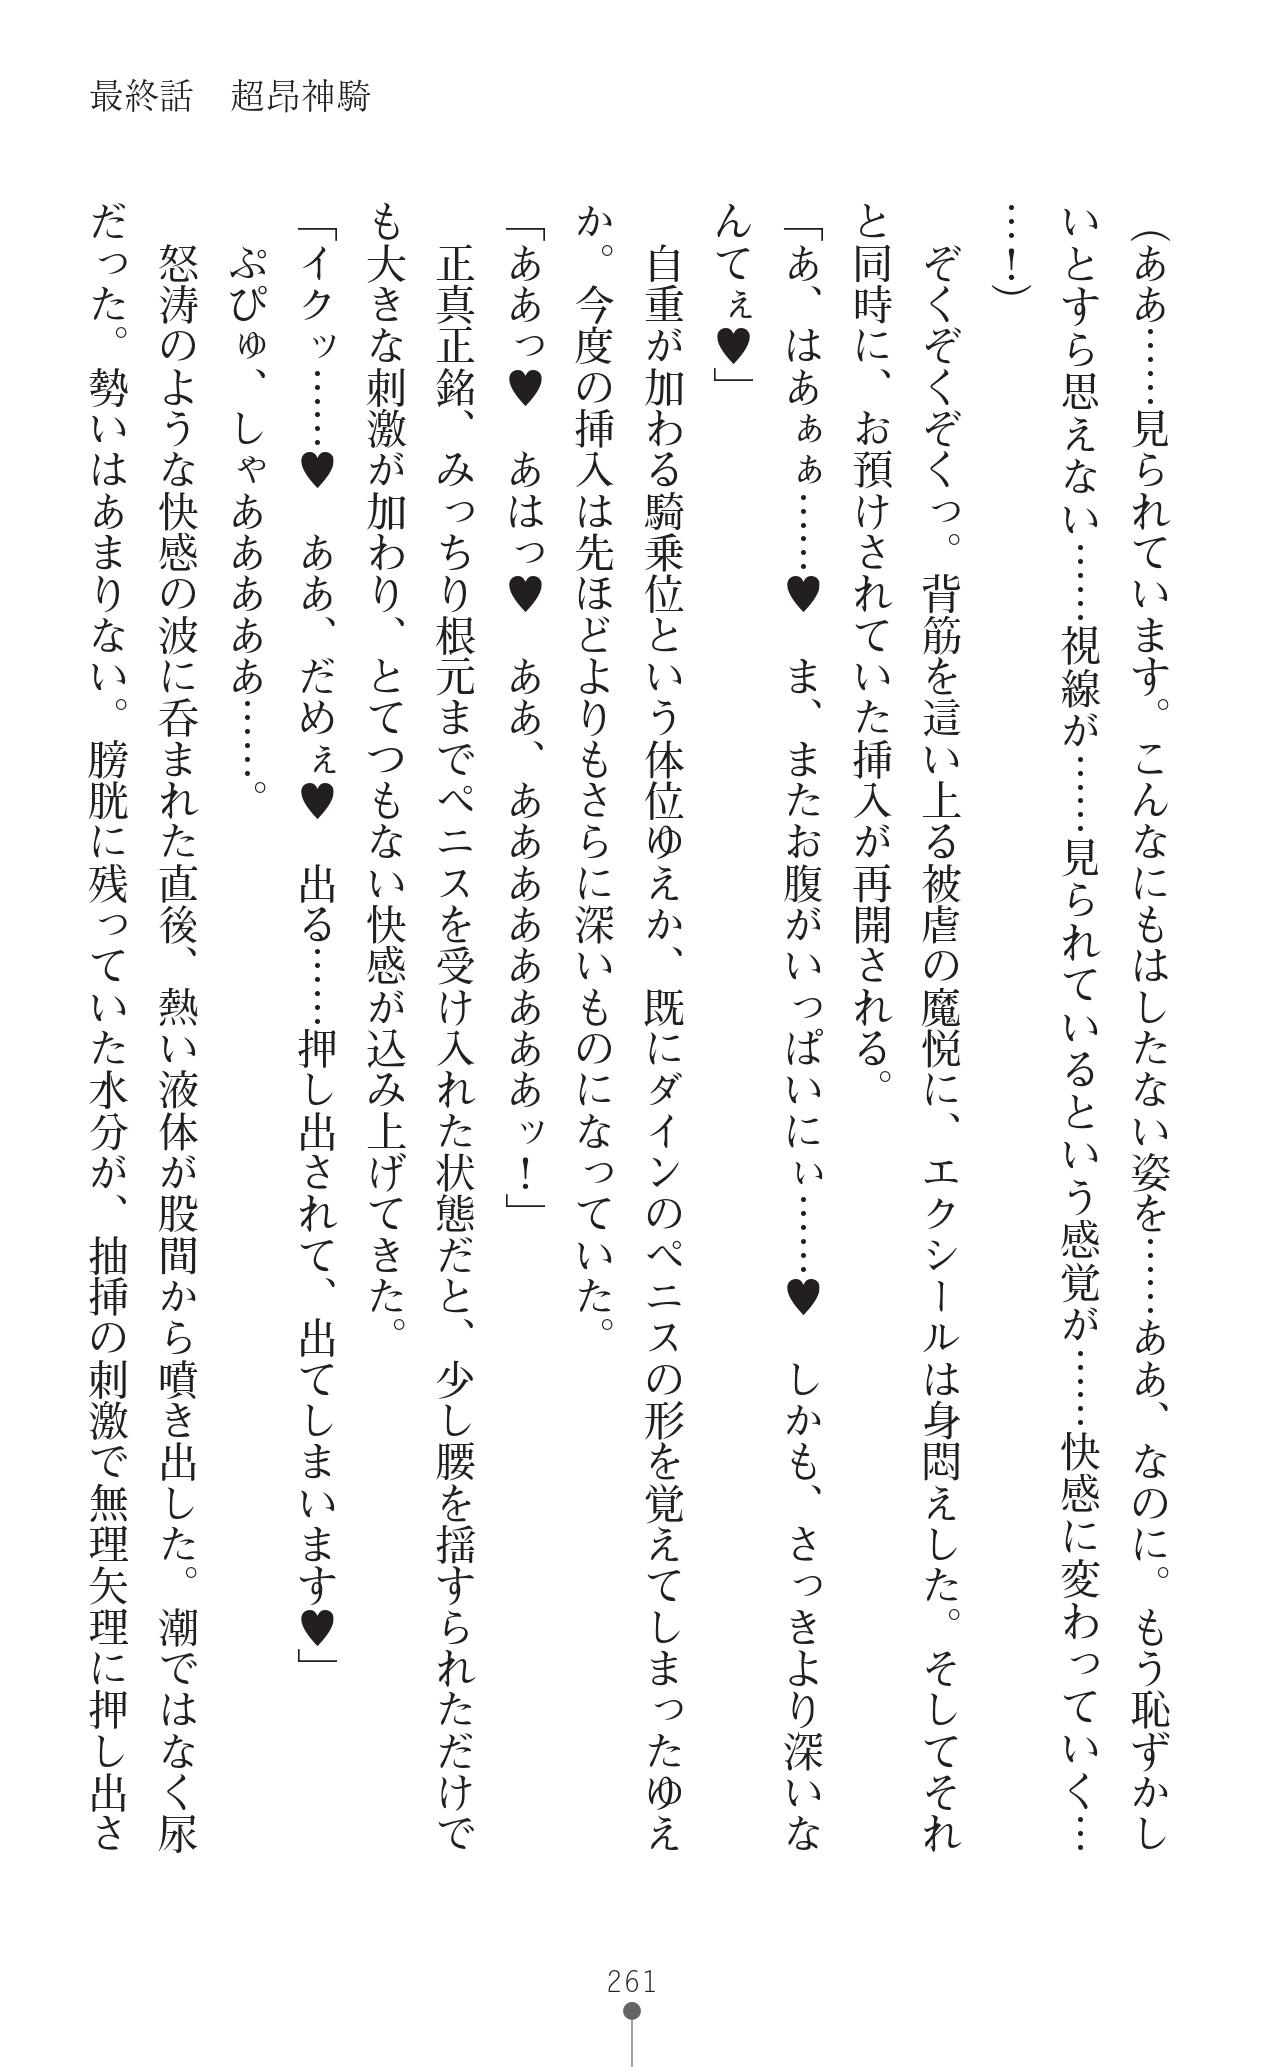 最終話　超昂神騎
（ああ……見られています。こんなにもはしたない姿を……ああ、なのに。もう恥ずかし
いとすら思えない……視線が……見られているという感覚が……快感に変わっていく…
…！）
　ぞくぞくぞくっ。背筋を這い上る被虐の魔悦に、エクシールは身悶えした。そしてそれ
と同時に、お預けされていた挿入が再開される。
「あ、はあぁぁ……♥　ま、またお腹がいっぱいにぃ……♥　しかも、さっきより深いな
んてぇ♥」
　自重が加わる騎乗位という体位ゆえか、既にダインのペニスの形を覚えてしまったゆえ
か。今度の挿入は先ほどよりもさらに深いものになっていた。
「ああっ♥　あはっ♥　ああ、ああああああああッ！」
　正真正銘、みっちり根元までペニスを受け入れた状態だと、少し腰を揺すられただけで
も大きな刺激が加わり、とてつもない快感が込み上げてきた。
「イクッ……♥　ああ、だめぇ♥　出る……押し出されて、出てしまいます♥」
　ぷぴゅ、しゃあああああ……。
　怒涛のような快感の波に呑まれた直後、熱い液体が股間から噴き出した。潮ではなく尿
だった。勢いはあまりない。膀胱に残っていた水分が、抽挿の刺激で無理矢理に押し出さ
261